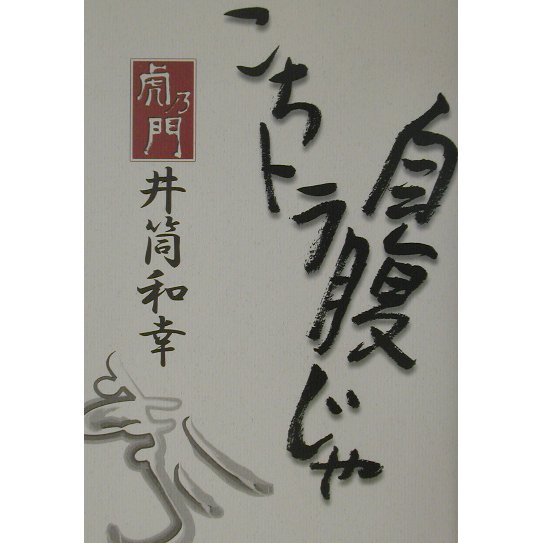 こちトラ
自腹じゃ
虎乃門
井筒和幸